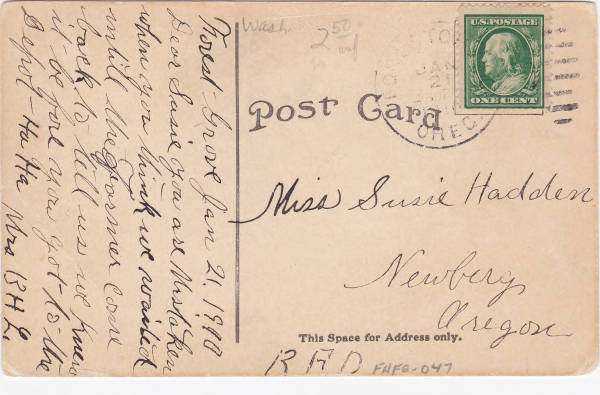 Forest Grove Jan 21, 1910
Dear Susie you are mistaken
when you think we waited
untill the farmer come
back to tell us we knew
it before you got to the
Depot - Ha Ha Mrs B H L
Wash.
2 50
U.S. POSTAGE
ONE CENT
OREG
Post Card
Miss Susie Hadden
Newberg
Oregon
This Space for Address only.
R F D
FHFG-047